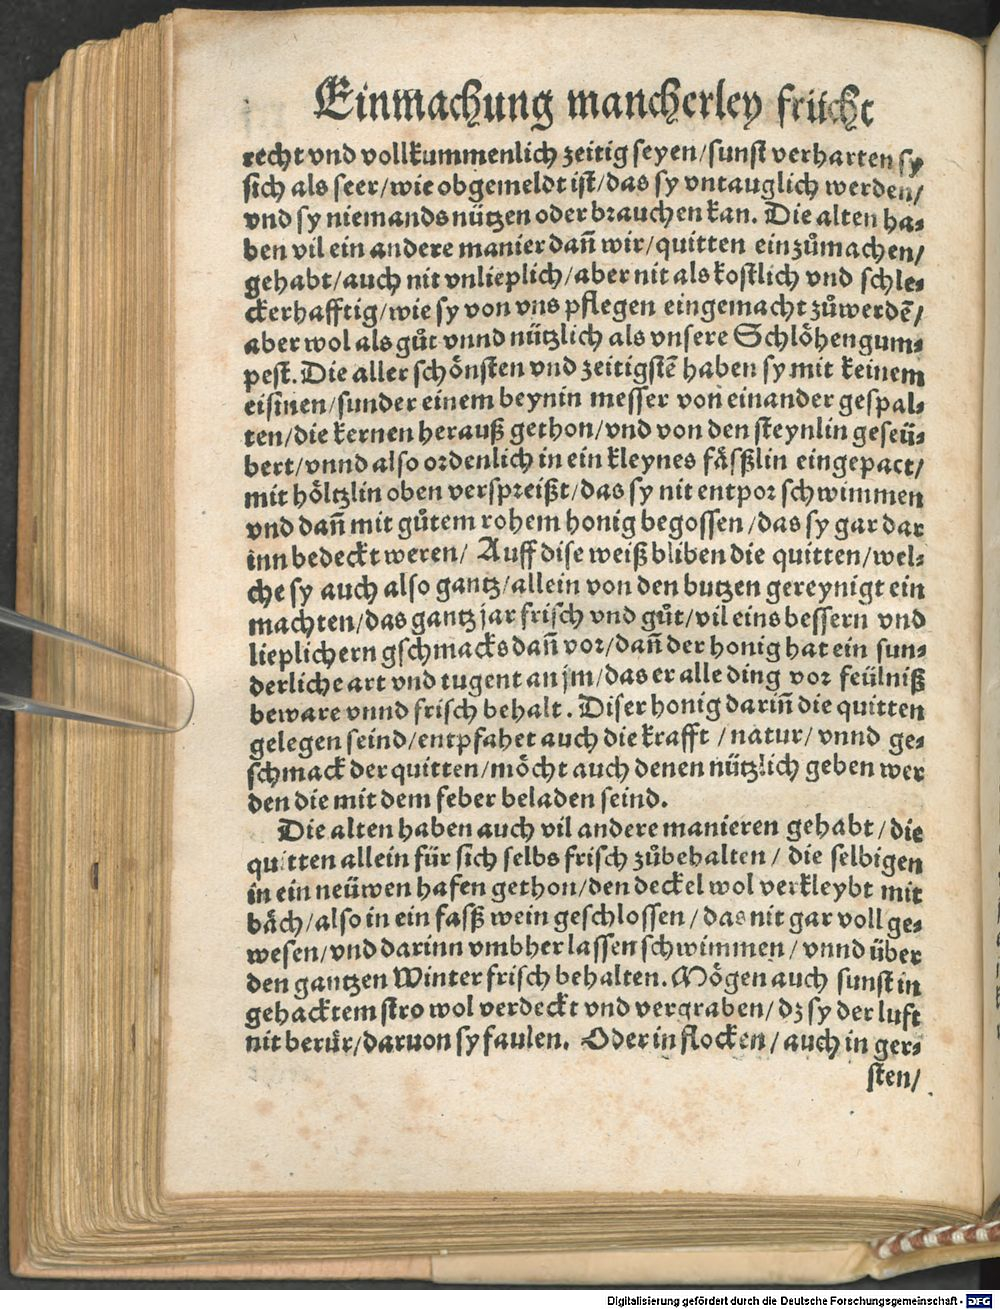 Einmachung mancherley frücht
recht vnd vollkummenlich zeitig seyen/sunst verharten sy
sich als seer/wie obgemeldt ist/das sy vntauglich werden/
vnd sy niemands nützen oder brauchen kan. Die alten ha⸗
ben vil ein andere manier dañ wir/quitten einzůmachen/
gehabt/auch nit vnlieplich/aber nit als kostlich vnd schle⸗
ckerhafftig/wie sy von vns pflegen eingemacht zůwerdẽ/
aber wol als gůt vnnd nützlich als vnsere Schlöhengum⸗
pest. Die aller schönsten vnd zeitigstẽ haben sy mit keinem
eisinen/sunder einem beynin messer von einander gespal⸗
ten/die kernen herauß gethon/vnd von den steynlin geseü⸗
bert/vnnd also ordenlich in ein kleynes fäsßlin eingepact/
mit höltzlin oben verspreißt/das sy nit entpor schwimmen
vnd dañ mit gůtem rohem honig begossen/das sy gar dar
inn bedeckt weren/ Auff dise weiß bliben die quitten/wel⸗
che sy auch also gantz/allein von den butzen gereynigt ein
machten/das gantz jar frisch vnd gůt/vil eins bessern vnd
lieplichern gschmacks dañ vor/dañ der honig hat ein sun⸗
derliche art vnd tugent an jm/das er alle ding vor feülniß
beware vnnd frisch behalt. Diser honig dariñ die quitten
gelegen seind/entpfahet auch die krafft /natur/ vnnd ge⸗
schmack der quitten/möcht auch denen nützlich geben wer
den die mit dem feber beladen seind.
Die alten haben auch vil andere manieren gehabt/die
quitten allein für sich selbs frisch zůbehalten/ die selbigen
in ein neüwen hafen gethon/den deckel wol verkleybt mit
bäch/also in ein fasß wein geschlossen/das nit gar voll ge⸗
wesen/vnd darinn vmbher lassen schwimmen/vnnd über
den gantzen Winter frisch behalten. Mögen auch sunst in
gehacktem stro wol verdeckt vnd vergraben/dz sy der luft
nit berür/daruon sy faulen. Oder in flocken/auch in ger⸗
sten/
Digitalisierung gefördert durch die Deutsche Forschungsgemeinschaft - DFG